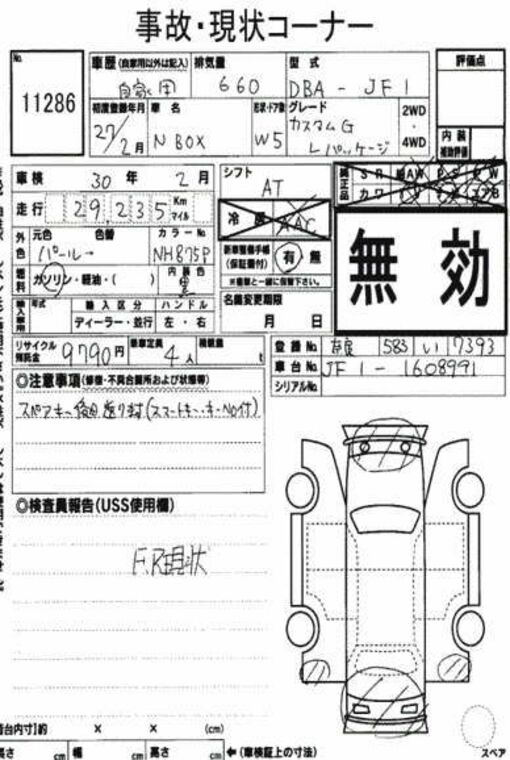 事故・現状コーナー
No. 11286
車歴 (自家用以外は記入) 自家用
排気量 660
型式 DBA - JF1
評価点
初度登録年月 27/2月
車名 N BOX
形状・ドア数 W5
グレード カスタムG Lパッケージ
2WD ・ 4WD
内装 補助評価
車検 30年 2月
シフト AT
純正品 SR AW PS PW
カワ
走行 29,235 Km マイル
冷 AAC
無効
外色 元色 色替 パール→
カラーNo. NH875P
新車整備手帳 (保証書付) 有 無
※車検と一緒に保管下さい。
燃料 ガソリン・軽油・( )
内装色 黒
輸入車専用 年式 輸入区分 ハンドル
ディーラー・並行 左・右
名義変更期限
月 日
リサイクル預託金 9790円
乗車定員 4人
積載量 t
登録No. 583 い 7393
車台No. JF1-1608991
シリアルNo.
◎注意事項(修復・不具合箇所および状態等)
スペアキー後日送り封(スマートキー・キーNo付)
◎検査員報告(USS使用欄)
F,R現状
荷台内寸]約 × × (cm)
長さ cm 幅 cm 高さ cm ←(車検証上の寸法)
スペア